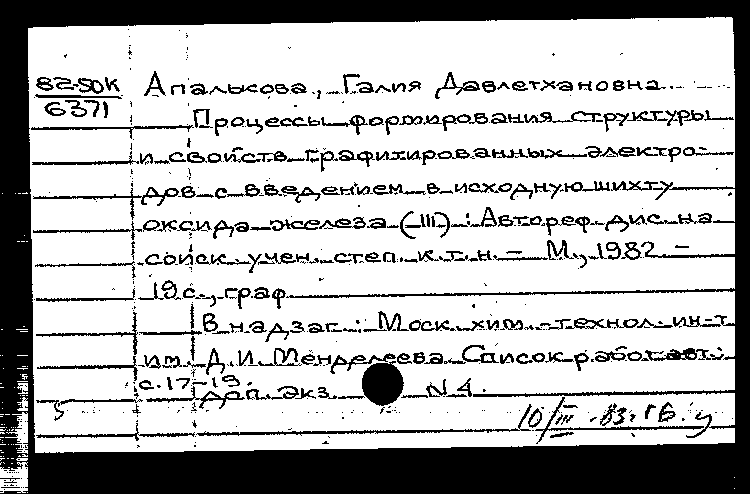 82-50к
6371
Апалькова, Галия Давлетхановна.
Процессы формирования структуры
и свойств графитированных электро-
дов с введением в исходную шихту
оксида железа (III) : Автореф. дис. на
соиск. учен. степ. к.т.н. - М., 1982. -
19 с., граф.
В надзаг.: Моск. хим.-технол. ин-т
им. Д.И. Менделеева. Список работ авт.:
с. 17-19.
Доп. экз. N 4.
5
10/III-83.